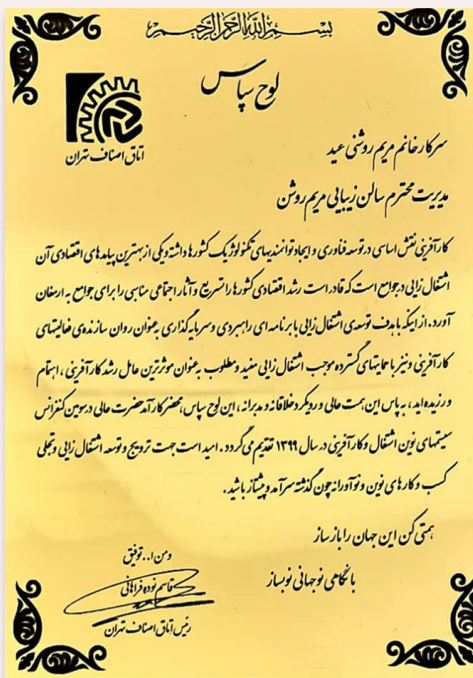 بسم الله الرحمن الرحیم
لوح سپاس
اتاق اصناف تهران
سرکار خانم مریم روشنی عید
مدیریت محترم سالن زیبایی مریم روشن
کارآفرینی نقش اساسی در توسعه فناوری و ایجاد توانمندیهای تکنولوژیک کشورها داشته و یکی از بهترین پیامدهای اقتصادی آن
اشتغال زایی در جوامع است که قادر است رشد اقتصادی کشورها را تسریع و آثار اجتماعی مناسبی را برای جوامع به ارمغان
آورد. از اینکه با هدف توسعه‌ی اشتغال زایی با برنامه ای راهبردی و سرمایه گذاری به عنوان روان سازنده‌ی فعالیتهای
کارآفرینی و نیز با حمایتهای گسترده موجب اشتغال زایی مفید و مطلوب به عنوان موثرترین عامل رشد کارآفرینی ، اهتمام
ورزیده اید، به پاس این همت عالی و رویکرد خلاقانه و مدبرانه ، این لوح سپاس، بمحضر کارآمد حضرت عالی در سومین کنفرانس
سیستمهای نوین اشتغال و کارآفرینی در سال ۱۳۹۹ تقدیم می گردد . امید است جهت ترویج و توسعه اشتغال زایی و تجلی
کسب و کارهای نوین و نوآورانه چون گذشته سرآمد و پیشتاز باشید .
همتی کن این جهان را باز ساز
با نگاهی نو جهانی نو بساز
و من ا... توفیق
قاسم نوده فراهانی
رئیس اتاق اصناف تهران